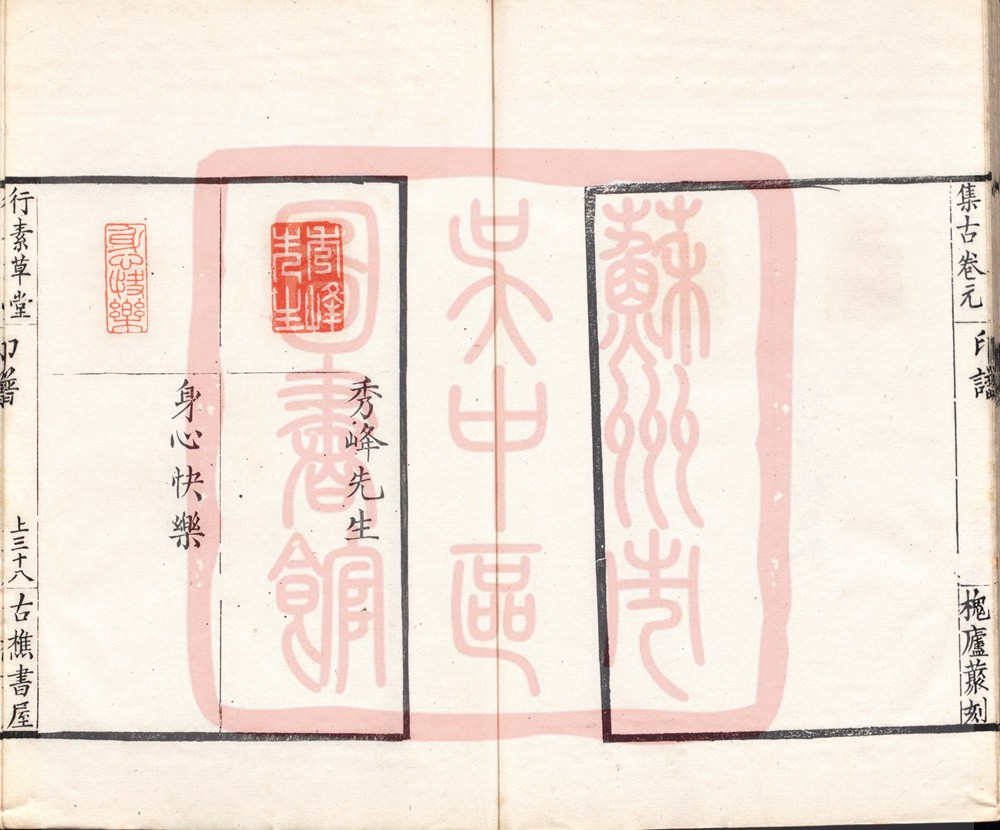 集古卷元
印譜
槐廬叢刻
蘇州市
吴中區
圖書館
秀峰先生
秀峰
先生
身心快樂
身心快樂
行素草堂
印譜
上三十八
古樵書屋